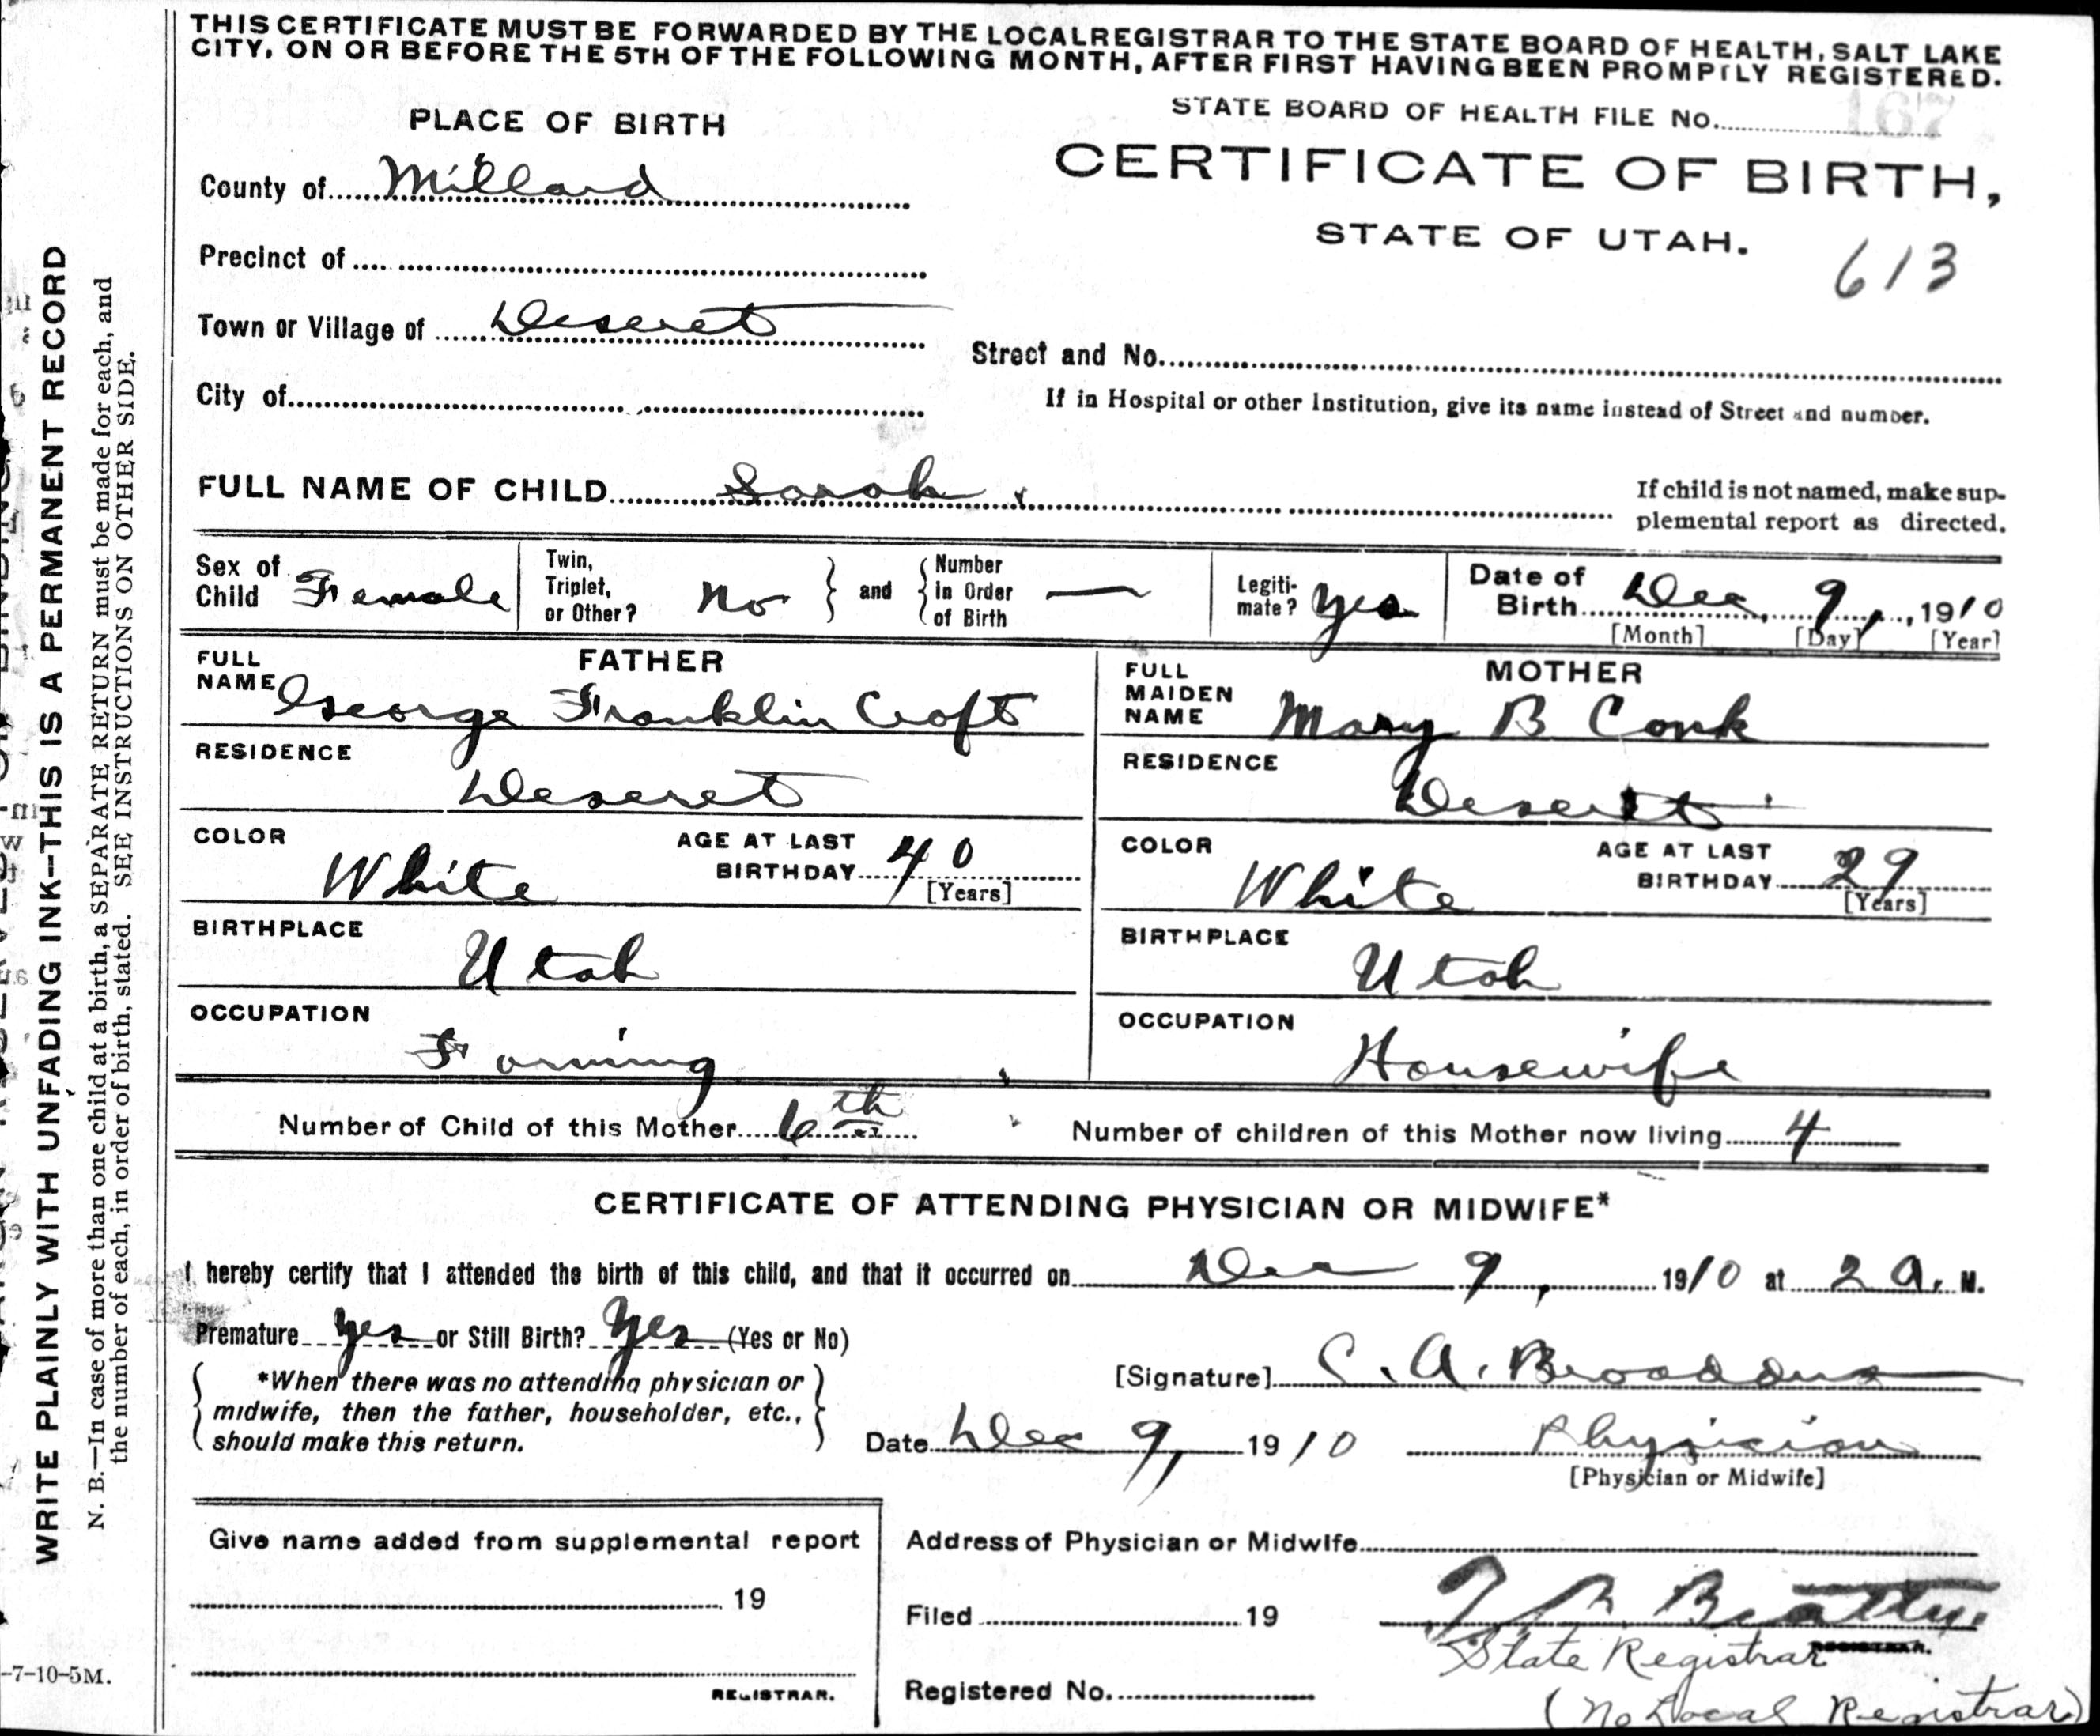 THIS CERTIFICATE MUST BE FORWARDED BY THE LOCAL REGISTRAR TO THE STATE BOARD OF HEALTH, SALT LAKE
CITY, ON OR BEFORE THE 5TH OF THE FOLLOWING MONTH, AFTER FIRST HAVING BEEN PROMPTLY REGISTERED.
STATE BOARD OF HEALTH FILE No. 167
PLACE OF BIRTH
CERTIFICATE OF BIRTH,
County of Millard
STATE OF UTAH.
613
Precinct of
Town or Village of Deseret
Street and No.
City of
If in Hospital or other Institution, give its name instead of Street and number.
FULL NAME OF CHILD Sarah
If child is not named, make sup-
plemental report as directed.
Sex of Child Female
Twin, Triplet, or Other? No } and { Number in Order of Birth —
Legiti-mate? Yes
Date of Birth Dec 9, 1910
[Month] [Day] [Year]
FATHER
FULL NAME George Franklin Croft
RESIDENCE
Deseret
COLOR White AGE AT LAST BIRTHDAY 40
[Years]
BIRTHPLACE
Utah
OCCUPATION
Farming
MOTHER
FULL MAIDEN NAME Mary B Conk
RESIDENCE
Deseret
COLOR White AGE AT LAST BIRTHDAY 29
[Years]
BIRTHPLACE
Utah
OCCUPATION
Housewife
Number of Child of this Mother 6th Number of children of this Mother now living 4
CERTIFICATE OF ATTENDING PHYSICIAN OR MIDWIFE*
I hereby certify that I attended the birth of this child, and that it occurred on Dec 9, 1910 at 2 A. M.
Premature Yes or Still Birth? Yes (Yes or No)
*When there was no attending physician or
midwife, then the father, householder, etc.,
should make this return.
[Signature] C. A. Broaddus
Date Dec 9, 1910 Physician
[Physician or Midwife]
Give name added from supplemental report
19
REGISTRAR.
Address of Physician or Midwife
Filed 19 T B Beatty.
REGISTRAR.
State Registrar
Registered No.
(No Local Registrar)
WRITE PLAINLY WITH UNFADING INK—THIS IS A PERMANENT RECORD
N. B.—In case of more than one child at a birth, a SEPARATE RETURN must be made for each, and
the number of each, in order of birth, stated. SEE INSTRUCTIONS ON OTHER SIDE.
-7-10-5M.